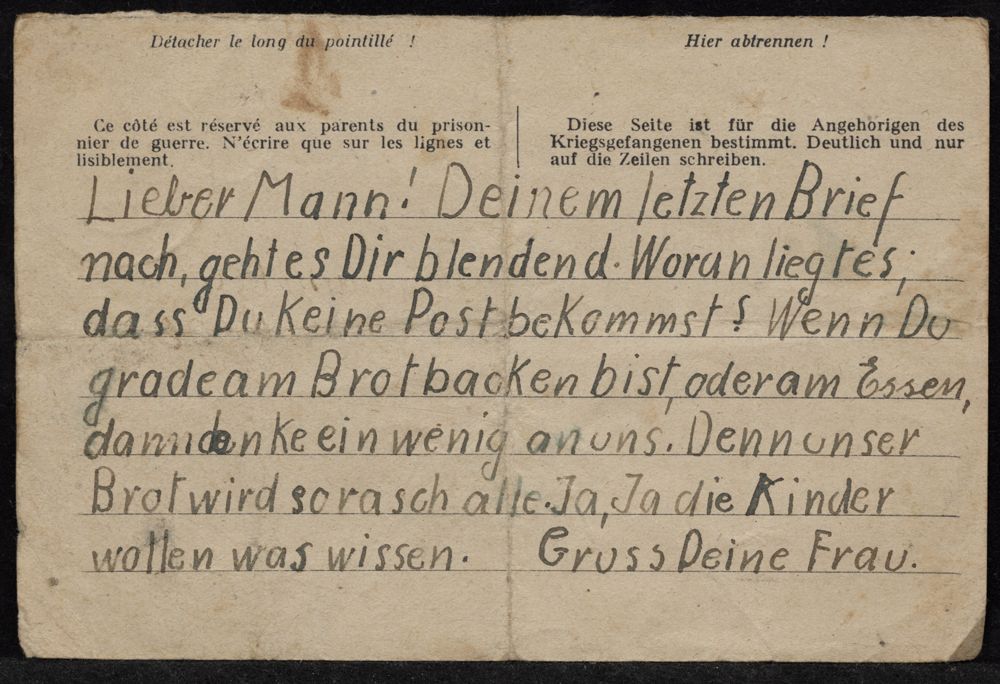 Détacher le long du pointillé !
Hier abtrennen !
Ce côté est réservé aux parents du prison-
nier de guerre. N'écrire que sur les lignes et
lisiblement.
Diese Seite ist für die Angehörigen des
Kriegsgefangenen bestimmt. Deutlich und nur
auf die Zeilen schreiben.
Lieber Mann! Deinem letzten Brief
nach, geht es Dir blendend. Woran liegt es,
dass Du Keine Post beKommst? Wenn Du
grade am Brotbacken bist, oder am Essen,
dann denke ein wenig an uns. Denn unser
Brot wird so rasch alle. Ja, Ja die Kinder
wollen was wissen. Gruss Deine Frau.